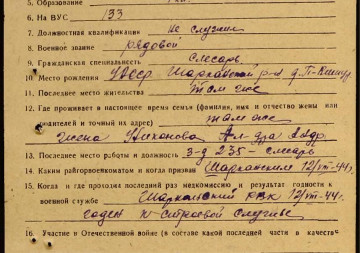 5. Образование
6. На ВУС 133
7. Должностная квалификация не служил
8. Военное звание рядовой
9. Гражданская специальность слесарь
10. Место рождения УАССР Шарканский р-н д.
11. Последнее место жительства там же
12. Где проживает в настоящее время семья (фамилия, имя и отчество жены или
родителей и точный их адрес) там же
жена Тихонова Ал-дра
13. Последнее место работы и должность з-д 235 - слесарь
14. Каким райгорвоенкоматом и когда призван Шарканским 12/VII-44г.
15. Когда и где проходил последний раз медкомиссию и результат годности к
военной службе Шарканский РВК 12/VII-44г.
годен к строевой службе
16. Участие в Отечественной войне (в составе какой последней части в качестве